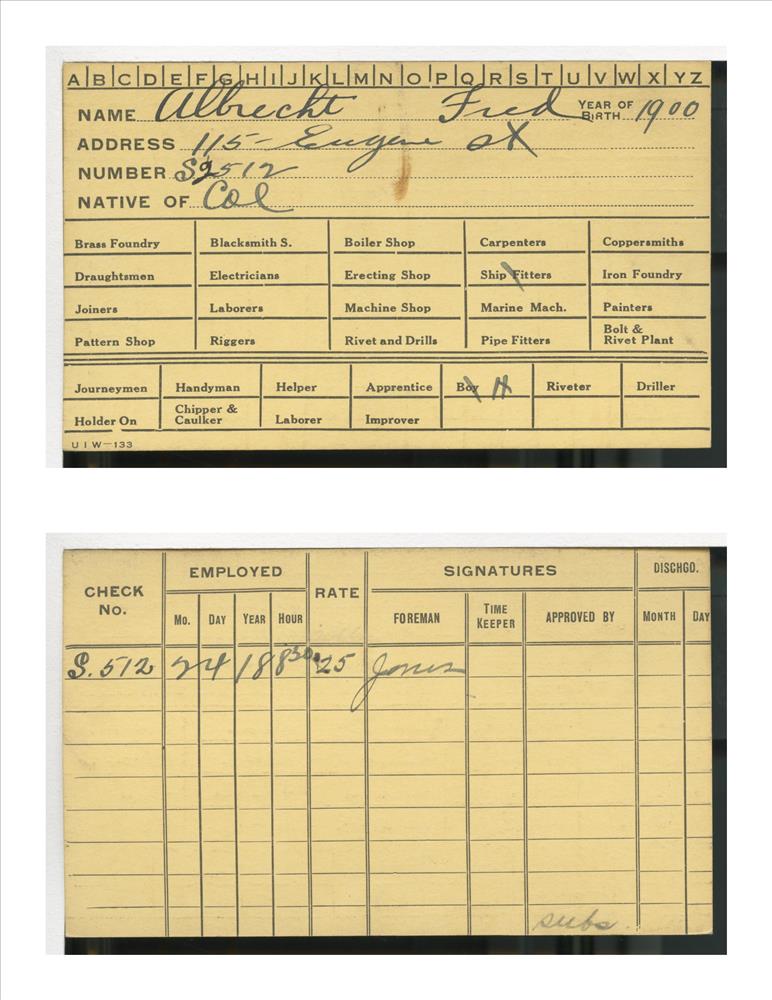 A B C D E F G H I J K L M N O P Q R S T U V W X Y Z
NAME Albrecht Fred YEAR OF BIRTH 1900
ADDRESS 115 - Eugene St
NUMBER S2512
NATIVE OF Cal
Brass Foundry Blacksmith S. Boiler Shop Carpenters Coppersmiths
Draughtsmen Electricians Erecting Shop Ship Fitters Iron Foundry
Joiners Laborers Machine Shop Marine Mach. Painters
Pattern Shop Riggers Rivet and Drills Pipe Fitters Bolt & Rivet Plant
Journeymen Handyman Helper Apprentice Boy H Riveter Driller
Holder On Chipper & Caulker Laborer Improver
U I W-133
CHECK No. EMPLOYED RATE SIGNATURES DISCHGD.
Mo. DAY YEAR HOUR FOREMAN TIME KEEPER APPROVED BY MONTH DAY
S. 512 2 4 18 8 30 25 Jones
subs